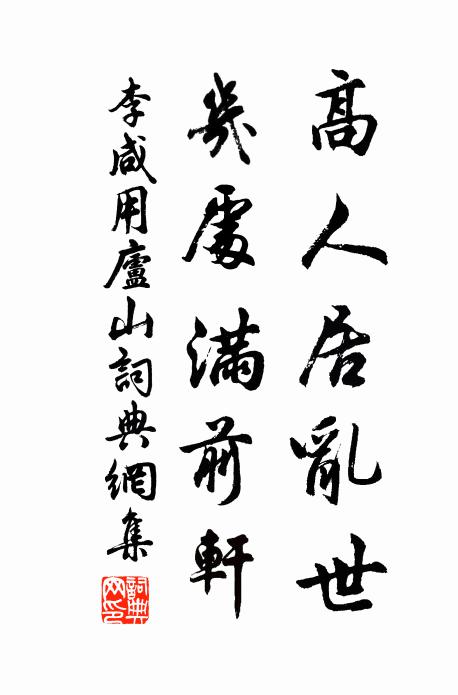 高人居亂世
幾處滿前軒
李咸用廬山詞典網集
詞典網印